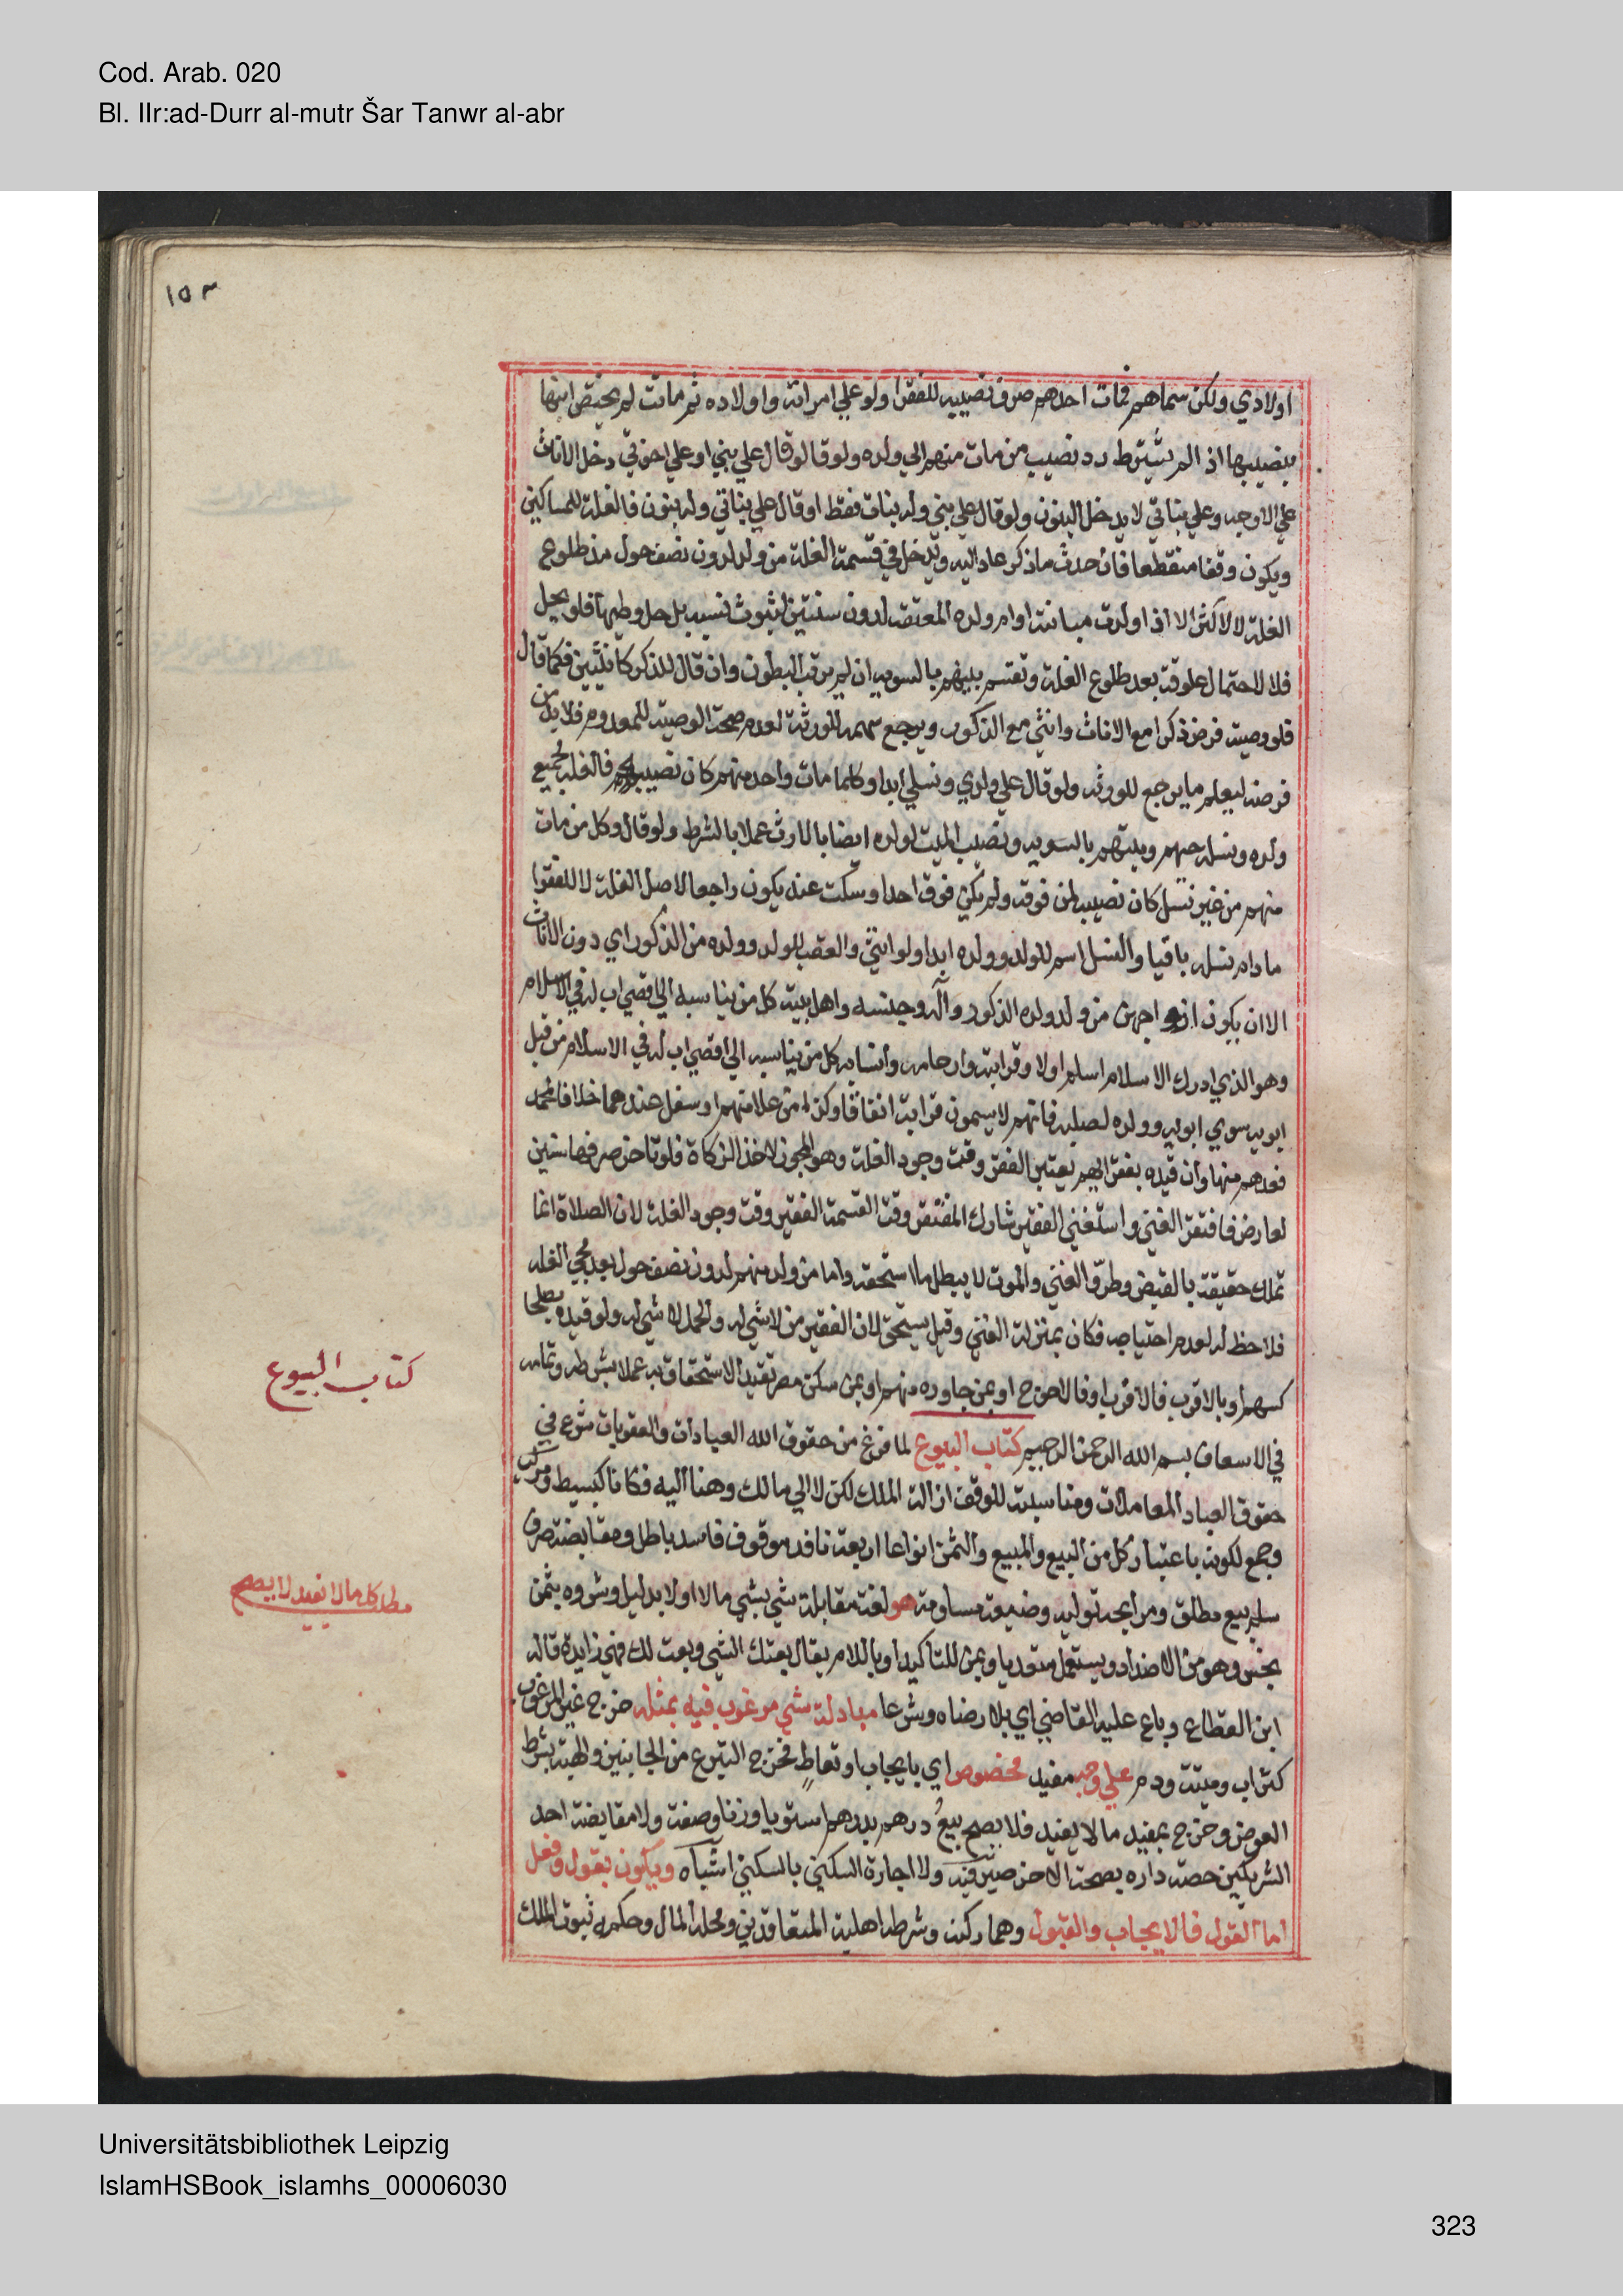 Cod. Arab. 020
Bl. IIr:ad-Durr al-mutr Šar Tanwr al-abr
١٥٣
اولادي ولكن سماهم فمات احدهم صرف نصيبه للفقرا ولو علي امراته واولاده ثم ماتت لم يختص ابنها
بنصيبها اذ الم يشترط رد نصيب من مات منهم الي ولده ولو قال لو قال علي بني او علي اخوتي دخل الاناث
علي الاوجه وعلي بناتي لا يدخل البنون ولو قال علي بني وله بنات فقط او قال علي بناتي وله بنون فالغلة للمساكين
ويكون وقفا منقطعا فان حدث ما ذكر عاد اليه ويدخل في قسمة الغلة من ولد لدون نصف حول مذ طلوع
الغلة لا لاكثر الا اذا ولدت مبانته او ام ولده المعتقة لدون سنتين لثبوت نسبه بل حل وطيها فلو يحل
فلا لاحتمال علوقه بعد طلوع الغلة وتقسم بينهم بالسوية ان لم يرتب البطون وان قال للذكر كانثيين فكما قال
فلو وصية فرض ذكرا مع الاناث وانثي مع الذكور ويرجع سهمه للورثة لعدم صحة الوصية للمعدوم فلا بد من
فرضه ليعلم ما يرجع للورثه ولو قال علي ولدي ونسلي ابدا وكلما مات واحد منهم كان نصيبه فالغلة لجميع
ولده ونسله حيهم وميتهم بالسوية ونصيب الميت لولده ايضا بالارث عملا بالشرط ولو قال وكل من مات
منهم من غير نسل كان نصيبه لمن فوقه ولم يكن فوق احدا وسكت عنه يكون راجعا لاصل الغلة لا للفقرا
ما دام نسله باقيا والنسل اسم للولد وولده ابدا ولو انثي والعقب للولد وولده من الذكور اي دون الاناث
الا ان يكون ازواجهن من ولد ولده الذكور وآله وجنسه واهل بيته كل من يناسبه الي اقصي اب له في الاسلام
وهو الذي ادرك الاسلام اسلم اولا وقرابته وارحامه وانسابه كل من يناسبه الي اقصي اب له في الاسلام من قبل
ابويه سوي ابويه وولده لصلبه فانهم لا يسمون قرابة اتفاقا وكذا من علا منهم او سفل عندهما خلافا لمحمد
فعدهم منها وان قيده بفقرايهم يعتبر الفقر وقت وجود الغلة وهو المجوز لاخذ الزكاة فلو تاخر صرفها سنين
لعارض فافتقر الغني واستغني الفقير شارك المفتقر وقت القسمة الفقير وقت وجود الغلة لان الصلاة انما
تملك حقيقة بالقبض وطرو الغني والموت لا يبطل ما استحقه واما من ولد منهم لدون نصف حول بعد مجي الغلة
فلا حظ له لعدم احتياجه فكان بمنزلة الغني وقيل يستحق لان الفقير من لا شي له والحمل لا شي له ولو قيده بصلحا
كسهم او بالاقرب فالاقرب او فالاحوج او بمن جاوره منهم او بمن سكن مصر تقيد الاستحقاق به عملا بشرطه وتمامه
في الاسعاف بسم الله الرحمن الرحيم كتاب البيوع لما فرغ من حقوق الله العبادات والعقوبات شرع في
حقوق العباد المعاملات ومناسبته للوقف ازالة الملك لكن لا الي مالك وهنا اليه فكانا كبسيط ومركب
وجمع لكونه باعتبار كل من البيع والمبيع والثمن انواعا اربعة نافذ موقوف فاسد باطل ومقايضة صرف
سلم بيع مطلق ومرابحة تولية وضيعة مساومة هو لغة مقابلة شي بشي مالا اولا بدليل وشروه بثمن
بخس وهو من الاضداد ويستعمل متعديا وبمن للتاكيد او باللام يقال بعتك الشي وبعت لك فهي زايدة قاله
ابن القطاع وباع عليه القاضي اي بلا رضاه وشرعا مبادلة شي مرغوب فيه بمثله خرج غير المرغوب
كتراب وميتة ودم علي وجه مفيد مخصوص اي بايجاب او تعاط فخرج التبرع من الجانبين والهبة بشرط
العوض وخرج بمفيد ما لا يفيد فلا يصح بيع درهم بدرهم استويا وزنا وصفة ولا مقايضة احد
الشريكين حصة داره بصحة الاخر صيرفية ولا اجارة السكني بالسكني اشباه ويكون بقول وفعل
اما القول فالايجاب والقبول وهما ركنه وشرطه اهلية المتعاقدين ومحله المال وحكمه ثبوت الملك
كتاب البيوع
مطل كل ما لا يفيد لا يصح
Universitätsbibliothek Leipzig
IslamHSBook_islamhs_00006030
323